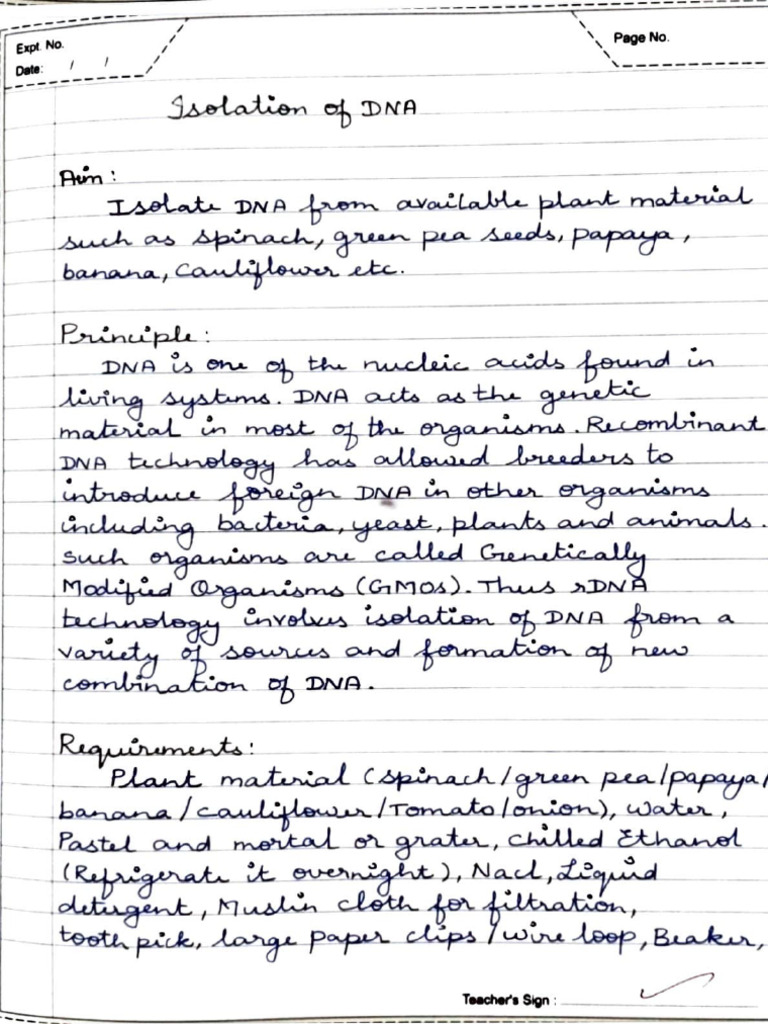 Expt. No.
Page No.
Date: / /
Isolation of DNA
Aim:
Isolate DNA from available plant material
such as spinach, green pea seeds, papaya,
banana, cauliflower etc.
Principle:
DNA is one of the nucleic acids found in
living systems. DNA acts as the genetic
material in most of the organisms. Recombinant
DNA technology has allowed breeders to
introduce foreign DNA in other organisms
including bacteria, yeast, plants and animals.
Such organisms are called Genetically
Modified Organisms (GMOs). Thus rDNA
technology involves isolation of DNA from a
variety of sources and formation of new
combination of DNA.
Requirements:
Plant material (spinach/green pea/papaya/
banana/cauliflower/Tomato/onion), water,
Pastel and mortal or grater, chilled Ethanol
(Refrigerate it overnight), Nacl, Liquid
detergent, Muslin cloth for filtration,
tooth pick, large paper clips/wire loop, Beaker,
Teacher's Sign :